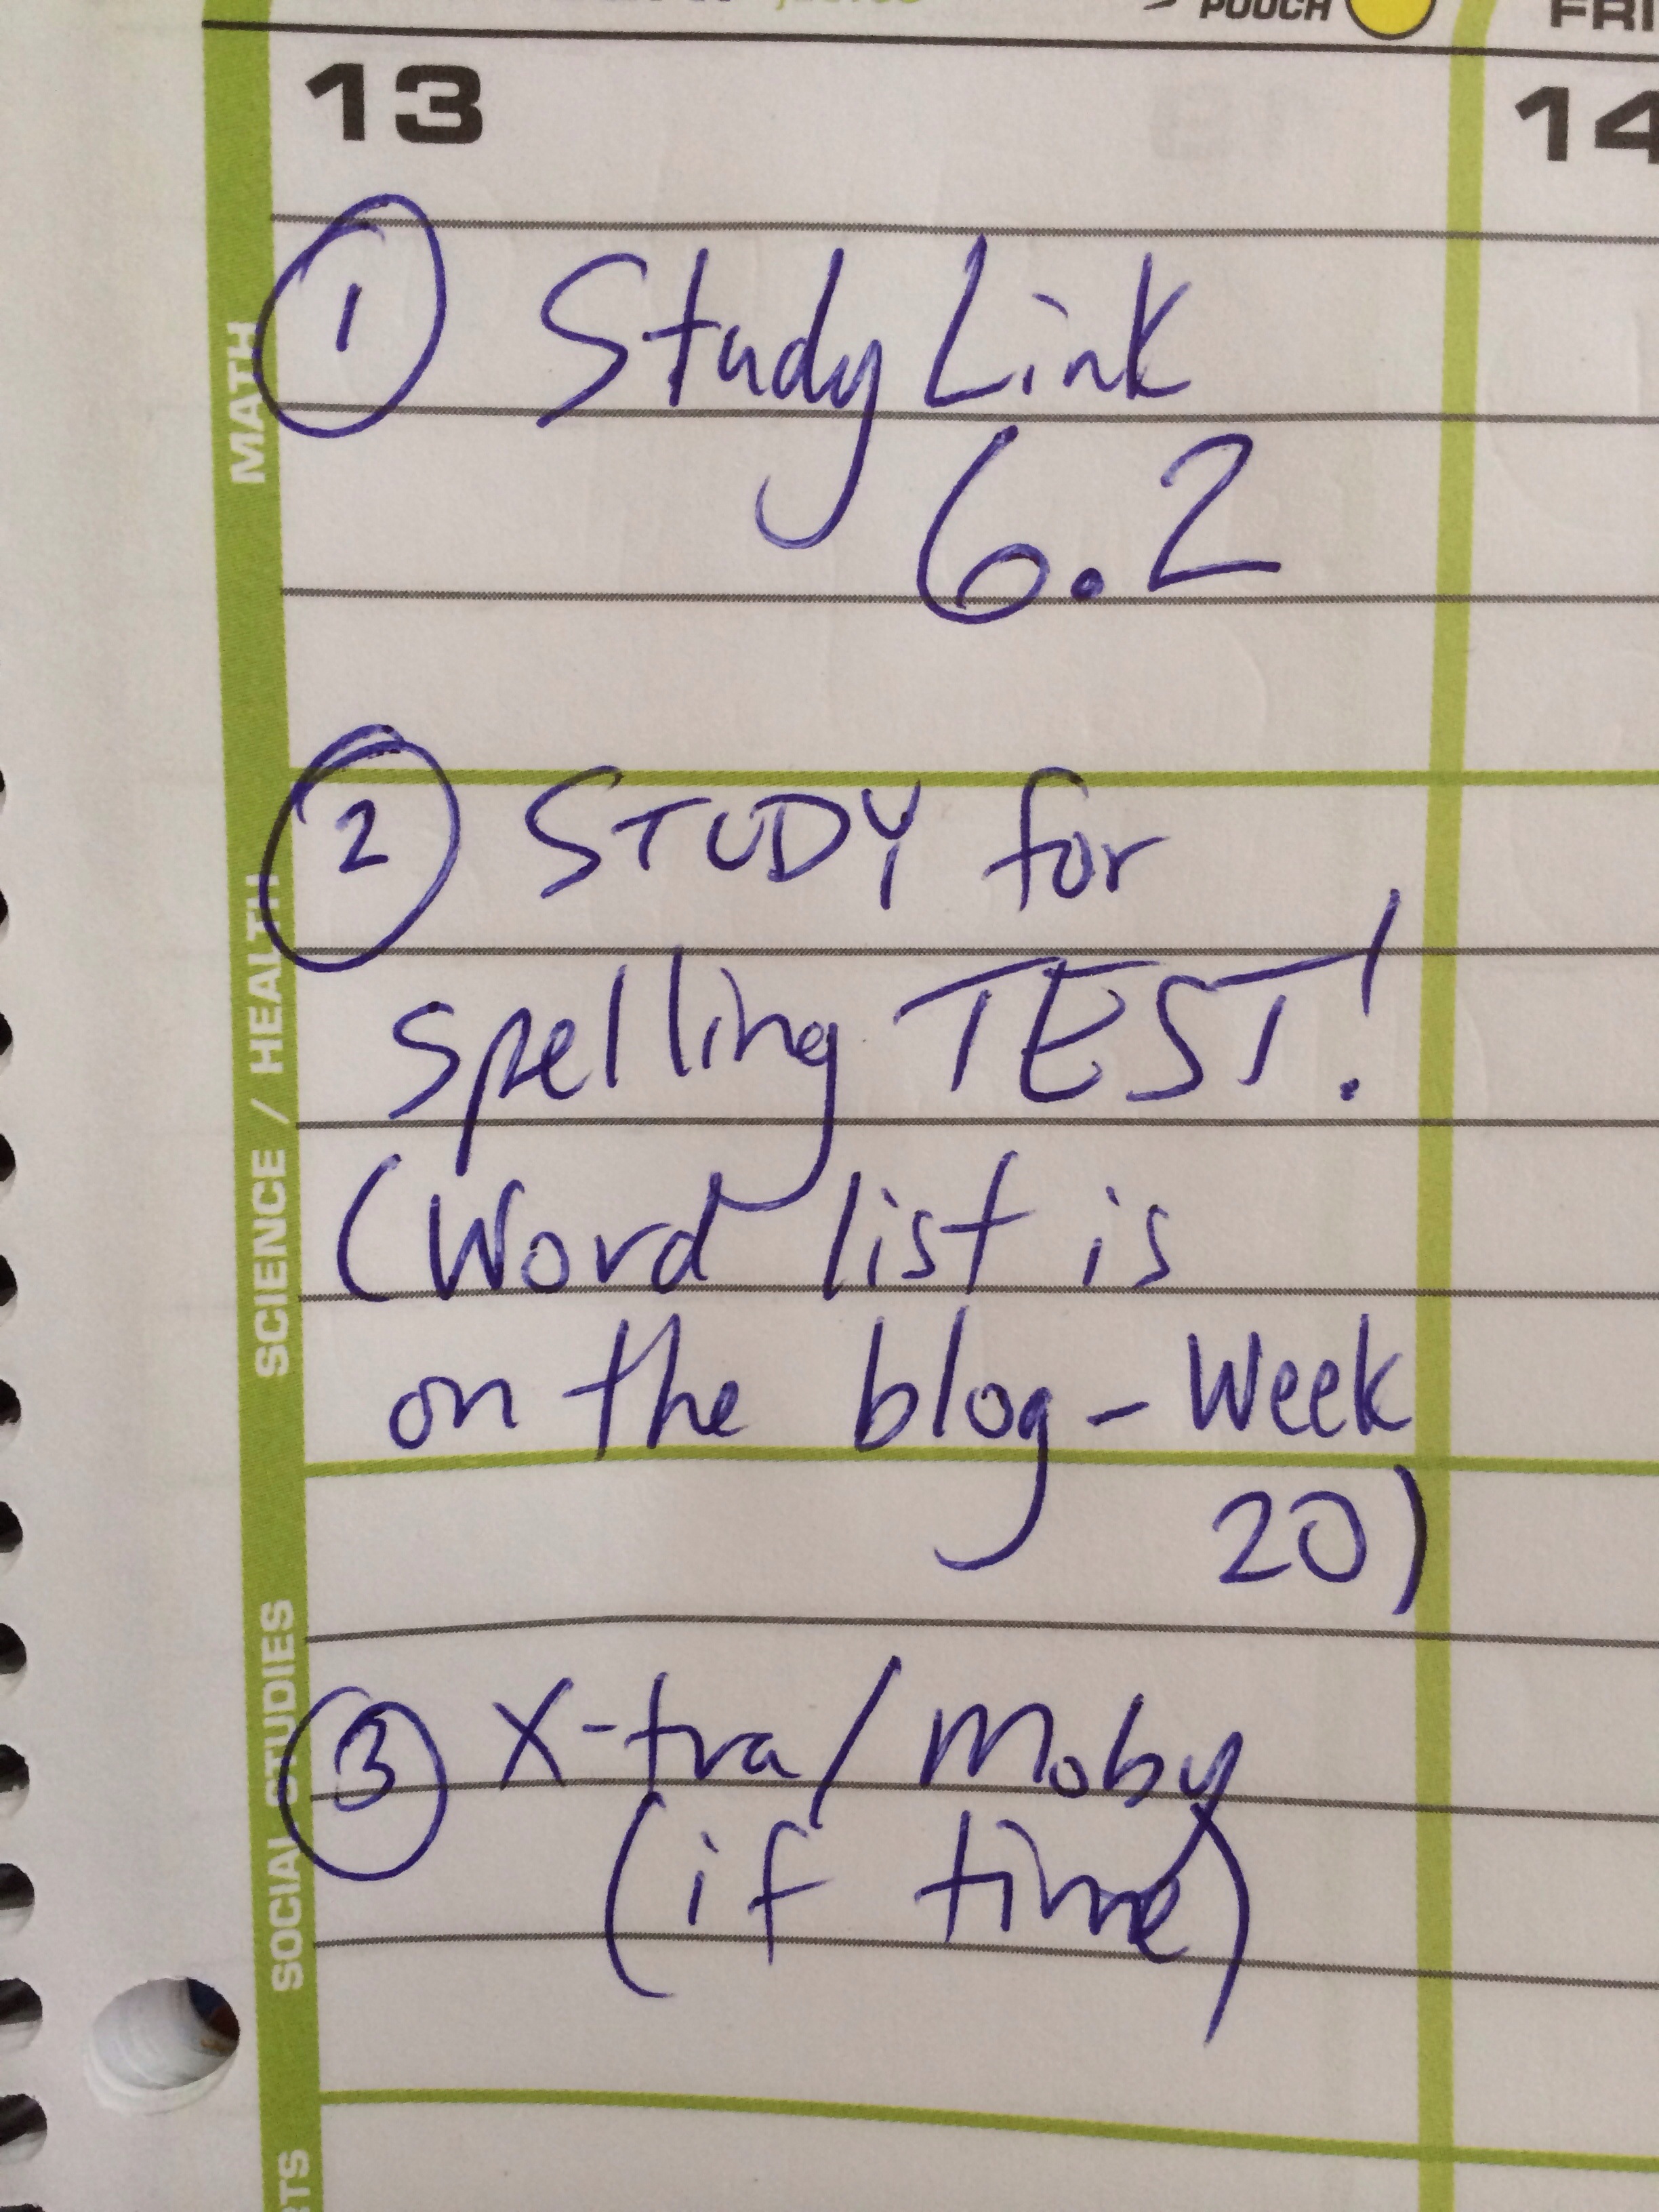 POUCH
FRI
13
14
MATH
1 Study Link
6.2
SCIENCE / HEALTH
2 STUDY for
spelling TEST!
(Word list is
on the blog - Week
20)
SOCIAL STUDIES
3 X-tra / Moby
(if time)
RTS